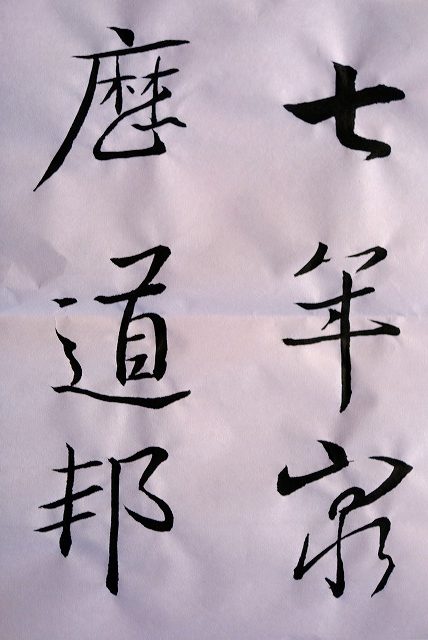 七年窮
歷道邦